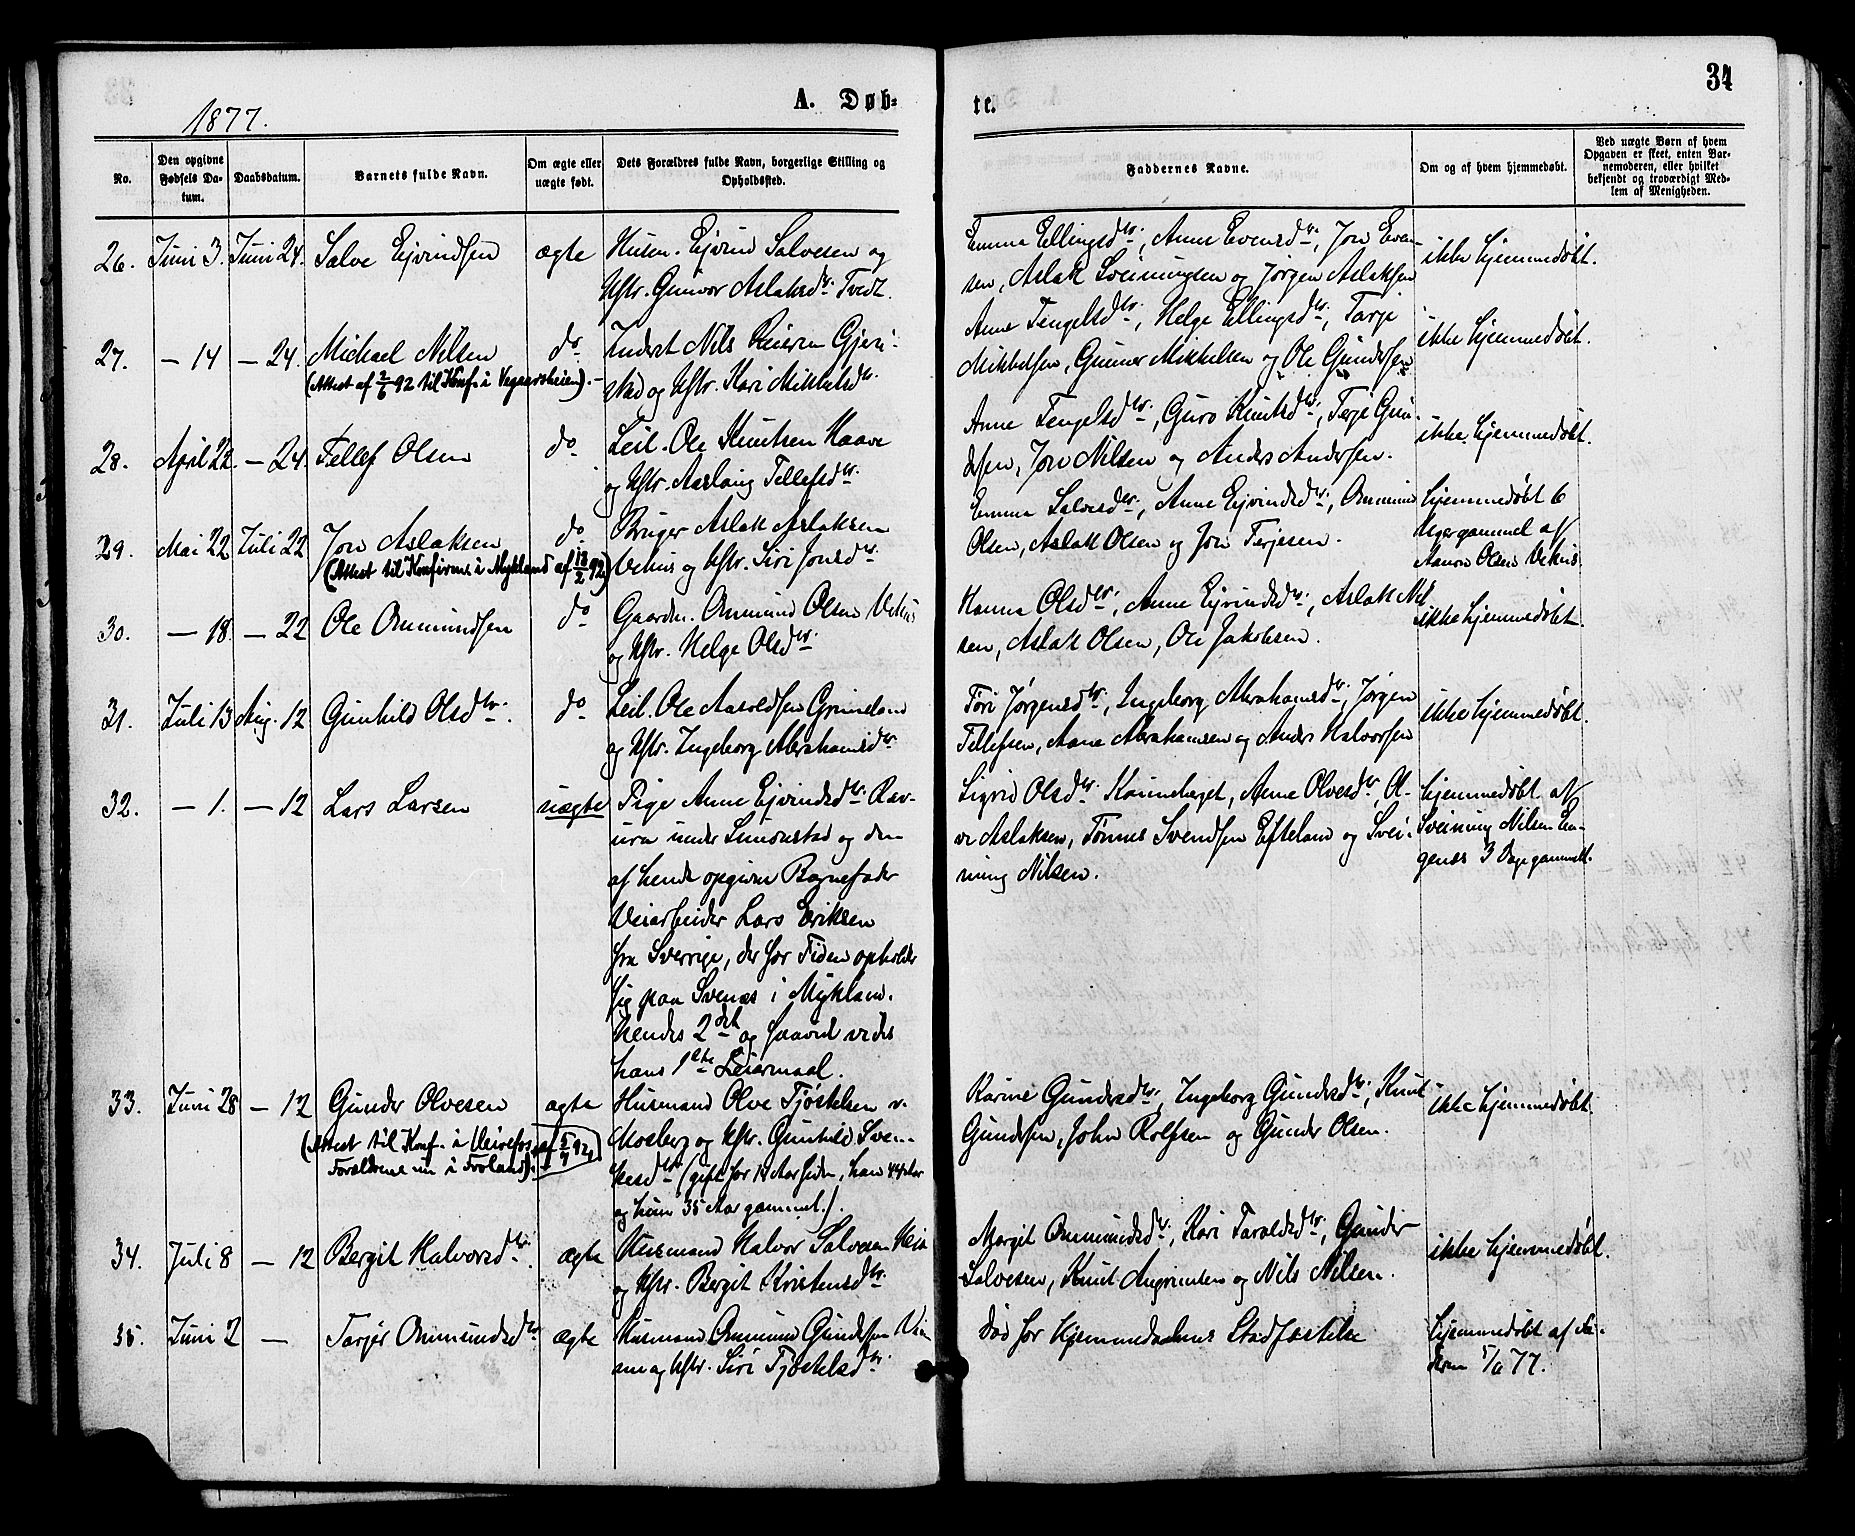 34
1877.
A. Døb-
te.
No.
Den opgivne
Fødsels Da-
tum.
Daabsdatum.
Barnets fulde Navn.
Om ægte eller
uægte født.
Dets Forældres fulde Navn, borgerlige Stilling og
Opholdssted.
Faddernes Navne.
Om og af hvem hjemmedøbt.
Ved uægte Børn af hvem
Opgaven er skeet, enten Bar-
nemoderen, eller hvilket
bekjendt og troværdigt Med-
lem af Menigheden.
26. Juni 3. Juni 24. Salve Ejvindsen ægte
Husm. Ejvind Salvesen og
Hstr. Gunvor Aslaksdtr. Tvedt.
Emma Ellingsdtr., Anne Evensdtr., Jon Even-
sen, Aslak Sveinungsen og Jørgen Aslaksen
ikke hjemmedøbt.
27. — 14 — 24. Michael Nilsen do
(Attest af 2/6 92 til Konf. i Vegaarsheien). -
Inderst Nils Reiersen Gjeri-
stad og Hstr. Kari Mikkelsdtr.
Anne Tengelsdtr., Helge Ellingsdtr., Tarje
Mikkelsen, Gunner Mikkelsen og Ole Gundersen
ikke hjemmedøbt.
28. April 22. — 24. Tellef Olsen do
Leil. Ole Knutsen Haave
og Hstr. Aaslaug Tellefsdtr.
Anne Tengelsdtr., Guro Knutsdtr., Terje Gun-
dersen, Jon Nilsen og Anders Andersen.
ikke hjemmedøbt.
29. Mai 22 Juli 22 Jon Aslaksen do
(Attest til Konfirm. i Mykland af 18/2 92)
Bruger Aslak Aslaksen
Vehus og Hstr. Siri Jonsdtr.
Emma Salvesdtr., Anne Ejvindsdtr., Ommund
Olsen, Aslak Olsen og Jon Terjesen.
hjemmedøbt 6
Uger gammel af
Olsen Vehus.
30. — 18. — 22 Ole Ommundsen do
Gaardm. Ommund Olsen Vehus
og Hstr. Helge Olsdtr.
Hanna Olsdtr., Anne Ejvindsdtr., Aslak Nil-
sen, Aslak Olsen, Ole Jakobsen.
ikke hjemmedøbt.
31. Juli 13 Aug. 12 Gunhild Olsdtr. do
Leil. Ole Aasoldsen Grimeland
og Hstr. Ingeborg Abrahamsdtr.
Tori Jørgensdtr., Ingeborg Abrahamsdtr., Jørgen
Tellefsen, Aane Abrahamsen og Anders Halvorsen
ikke hjemmedøbt.
32. — 1. — 12 Lars Larsen uægte
Pige Anne Ejvindsdtr. Rav-
uren under Simonstad og den
af hende opgivne Barnefader
Veiarbeider Lars Eriksen
fra Sverrige, der for Tiden opholder
sig paa Svenæs i Mykland.
Hendes 2det og saavel vides
hans 1ste Leiermaal.
Sigrid Olsdtr. Kaunehaget, Anne Olvesdtr., Ol-
ve Aslaksen, Tønnes Svendsen Eftelam og Svei-
nung Nilsen.
hjemmedøbt af
Sveinung Nilsen En-
genæs 3 Dage gammelt.
33. Juni 28 — 12 Gunder Olvesen ægte
(Attest til Konf. i af 5/7 92,
Forældrene nu i Froland).
Husmand Olve Tjøstelsen v.
Mosberg og Hstr. Gunhild Sven-
kesdtr. (gift for 12 Aar siden, han 44 Aar
og hun 35 Aar gammel.).
Karine Gundersdtr., Ingeborg Gundersdtr., Knut
Gundersen, John Rolfsen og Gunder Olsen.
ikke hjemmedøbt.
34. Juli 8 — 12 Bergit Halvorsdtr. ægte
Husmand Halvor Salvesen Heia
og Hstr. Bergit Kristensdtr.
Margit Ommundsdtr., Kari Taraldsdtr., Gunder
Salvesen, Knut Augrimsen og Nils Nilsen.
ikke hjemmedøbt.
35. Juni 2 — Tarjer Ommundsdtr. ægte
Husmand Ommund Gundersen Vin
næ og Hstr. Siri Tjøstelsdtr.
død før Hjemmedaabens Stadfæstelse
hjemmedøbt af Fa-
deren 5/6 77.